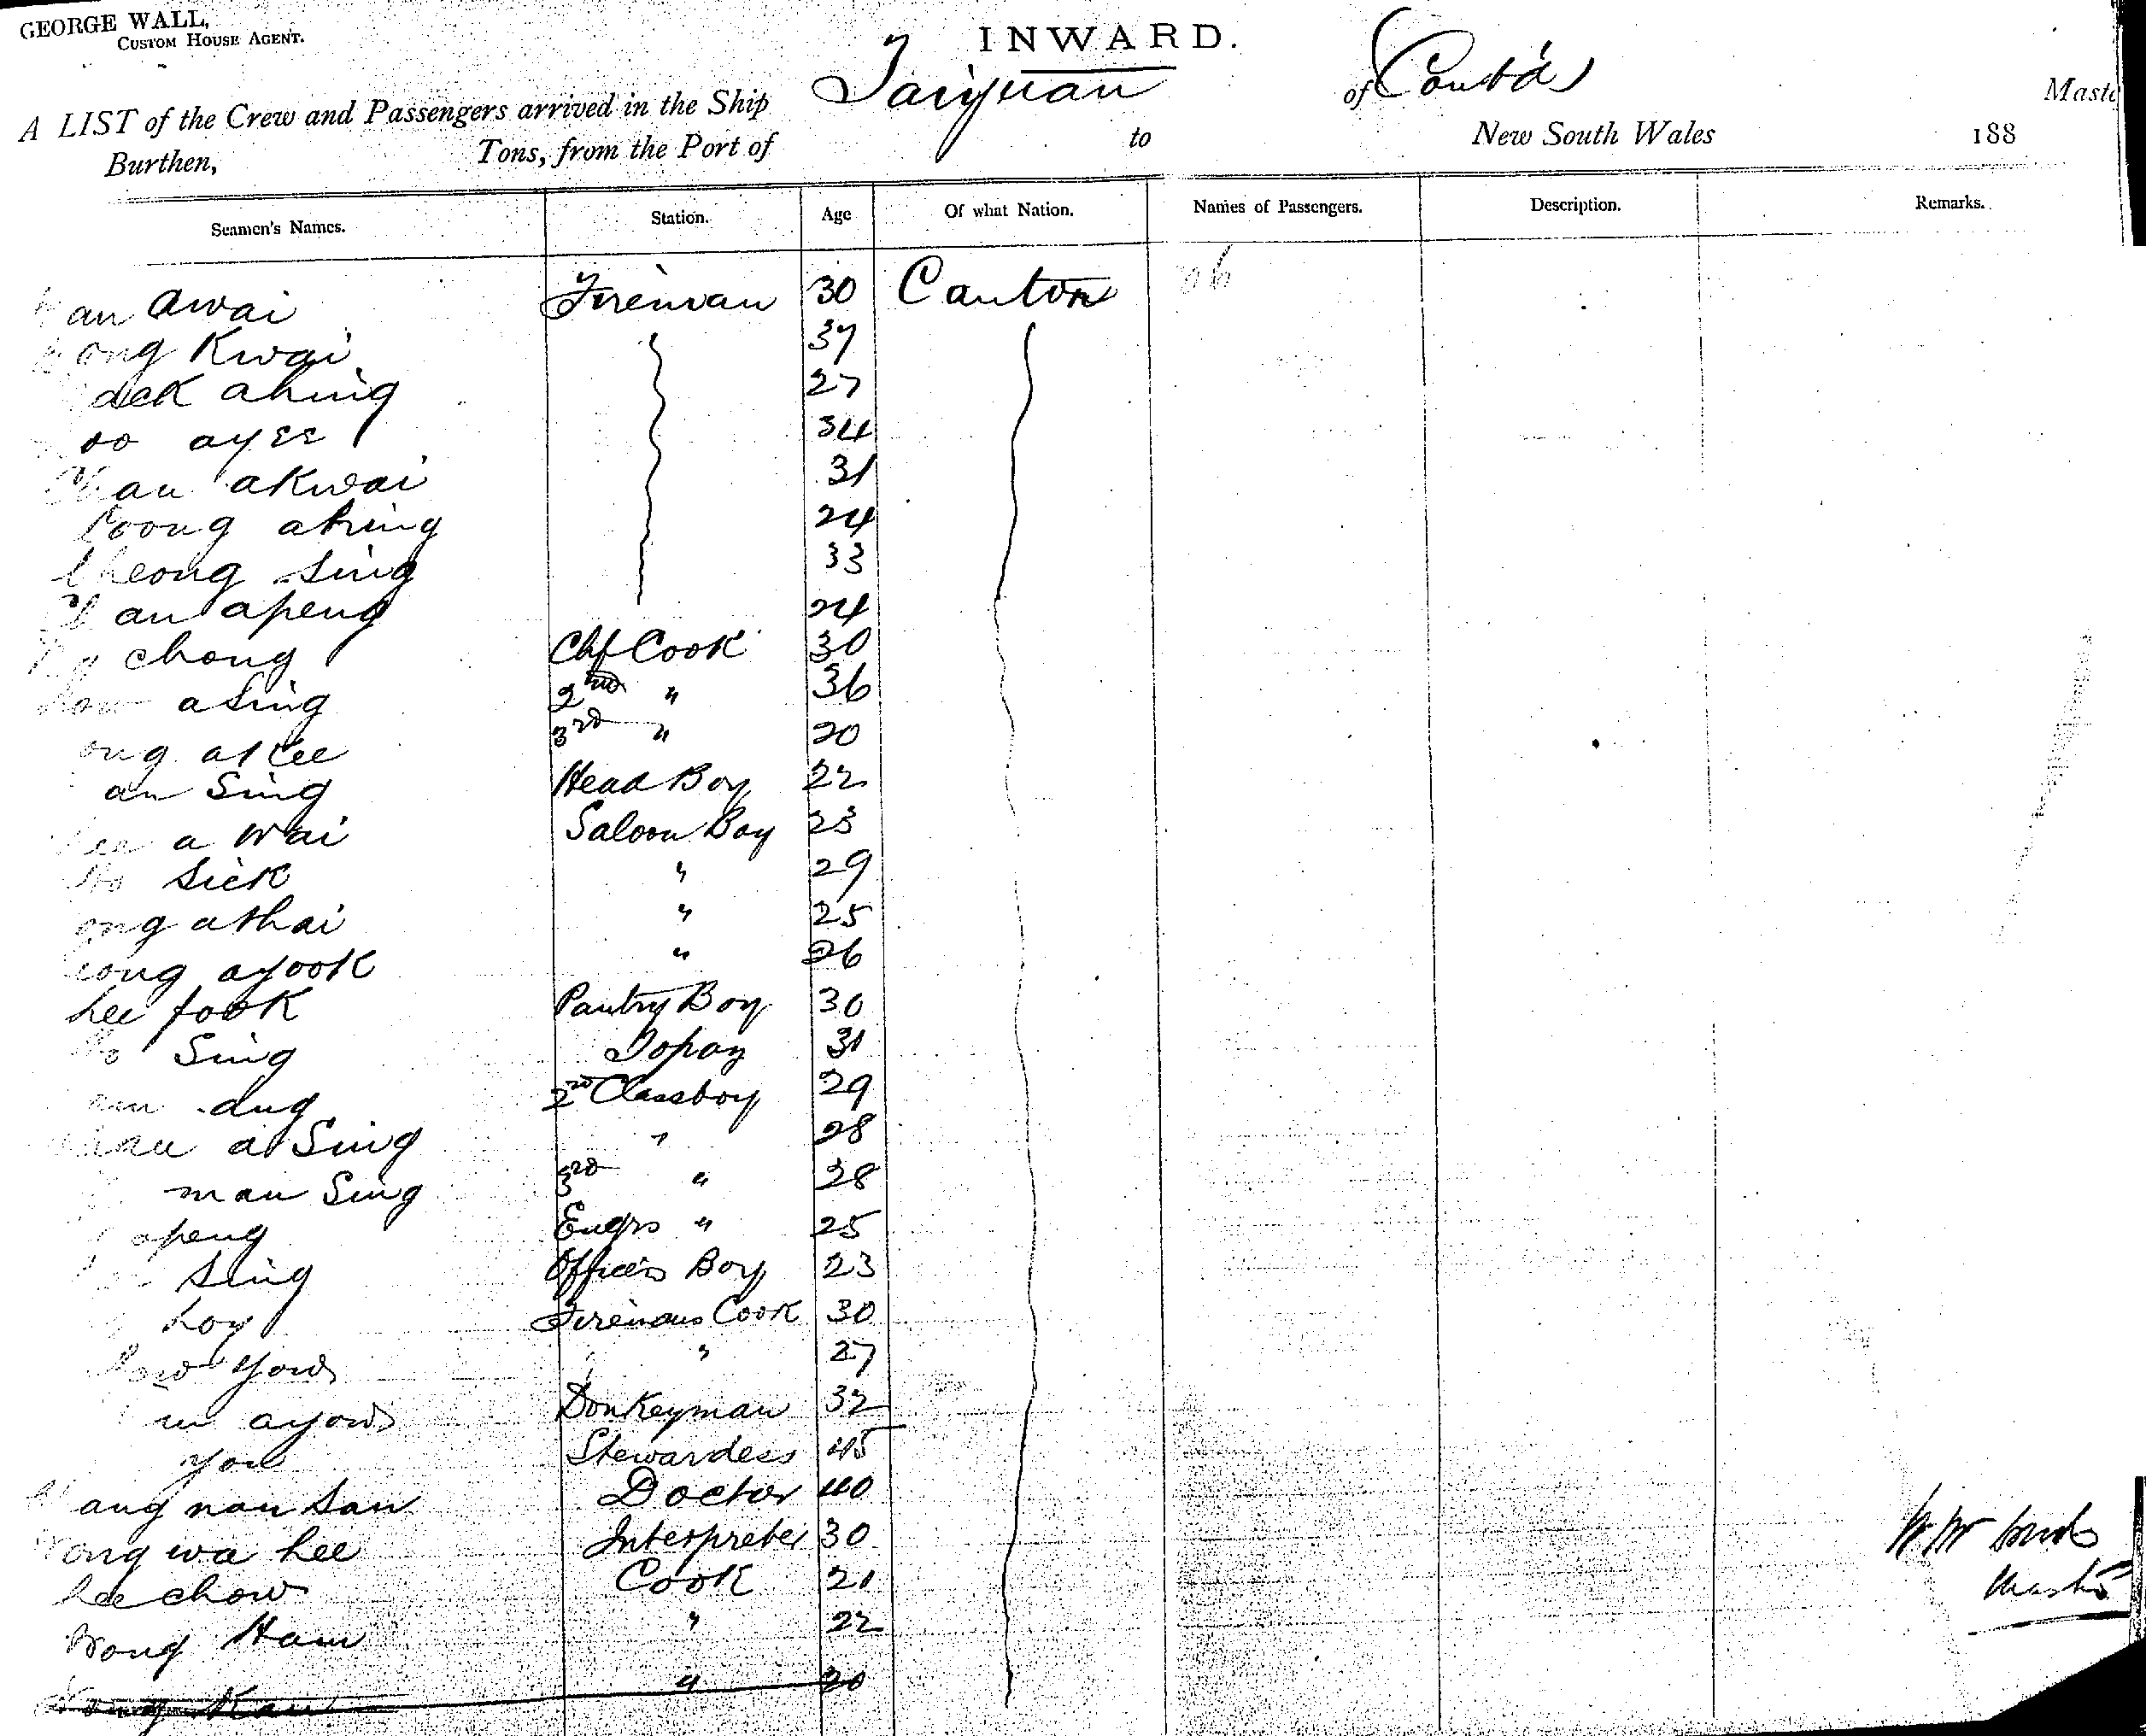 GEORGE WALL,
CUSTOM HOUSE AGENT.
INWARD.
A LIST of the Crew and Passengers arrived in the Ship Taiyuan of (Contd) Maste
Burthen, Tons, from the Port of to New South Wales 188
Seamen's Names. Station. Age Of what Nation. Names of Passengers. Description. Remarks.
an Awai Fireman 30 Canton
ong Kwai 37
ahing 27
oo ayee 34
Chan akwai 31
Loong ahing 24
Cheong Sing 33
an apeng 24
chong Chf Cook 30
how asing 2nd " 36
ong 3rd " 20
an Sing Head Boy 22
a Wai Saloon Boy 23
Ho Sick " 29
ong athai " 25
eong ayook " 26
Lee fook Pantry Boy 30
Ho Sing Topaz 31
2nd Classboy 29
a Sing " 28
man Sing 3rd " 28
apeng Engrs " 25
Sing Officers Boy 23
hoy Firemans Cook 30
how Yow " 27
ayow Donkeyman 32
you Stewardess 45
ang nan San Doctor 40
ong wa hee Interpreter 30
Lee chow Cook 21
Wong Ham " 22
Kan " 20
Master